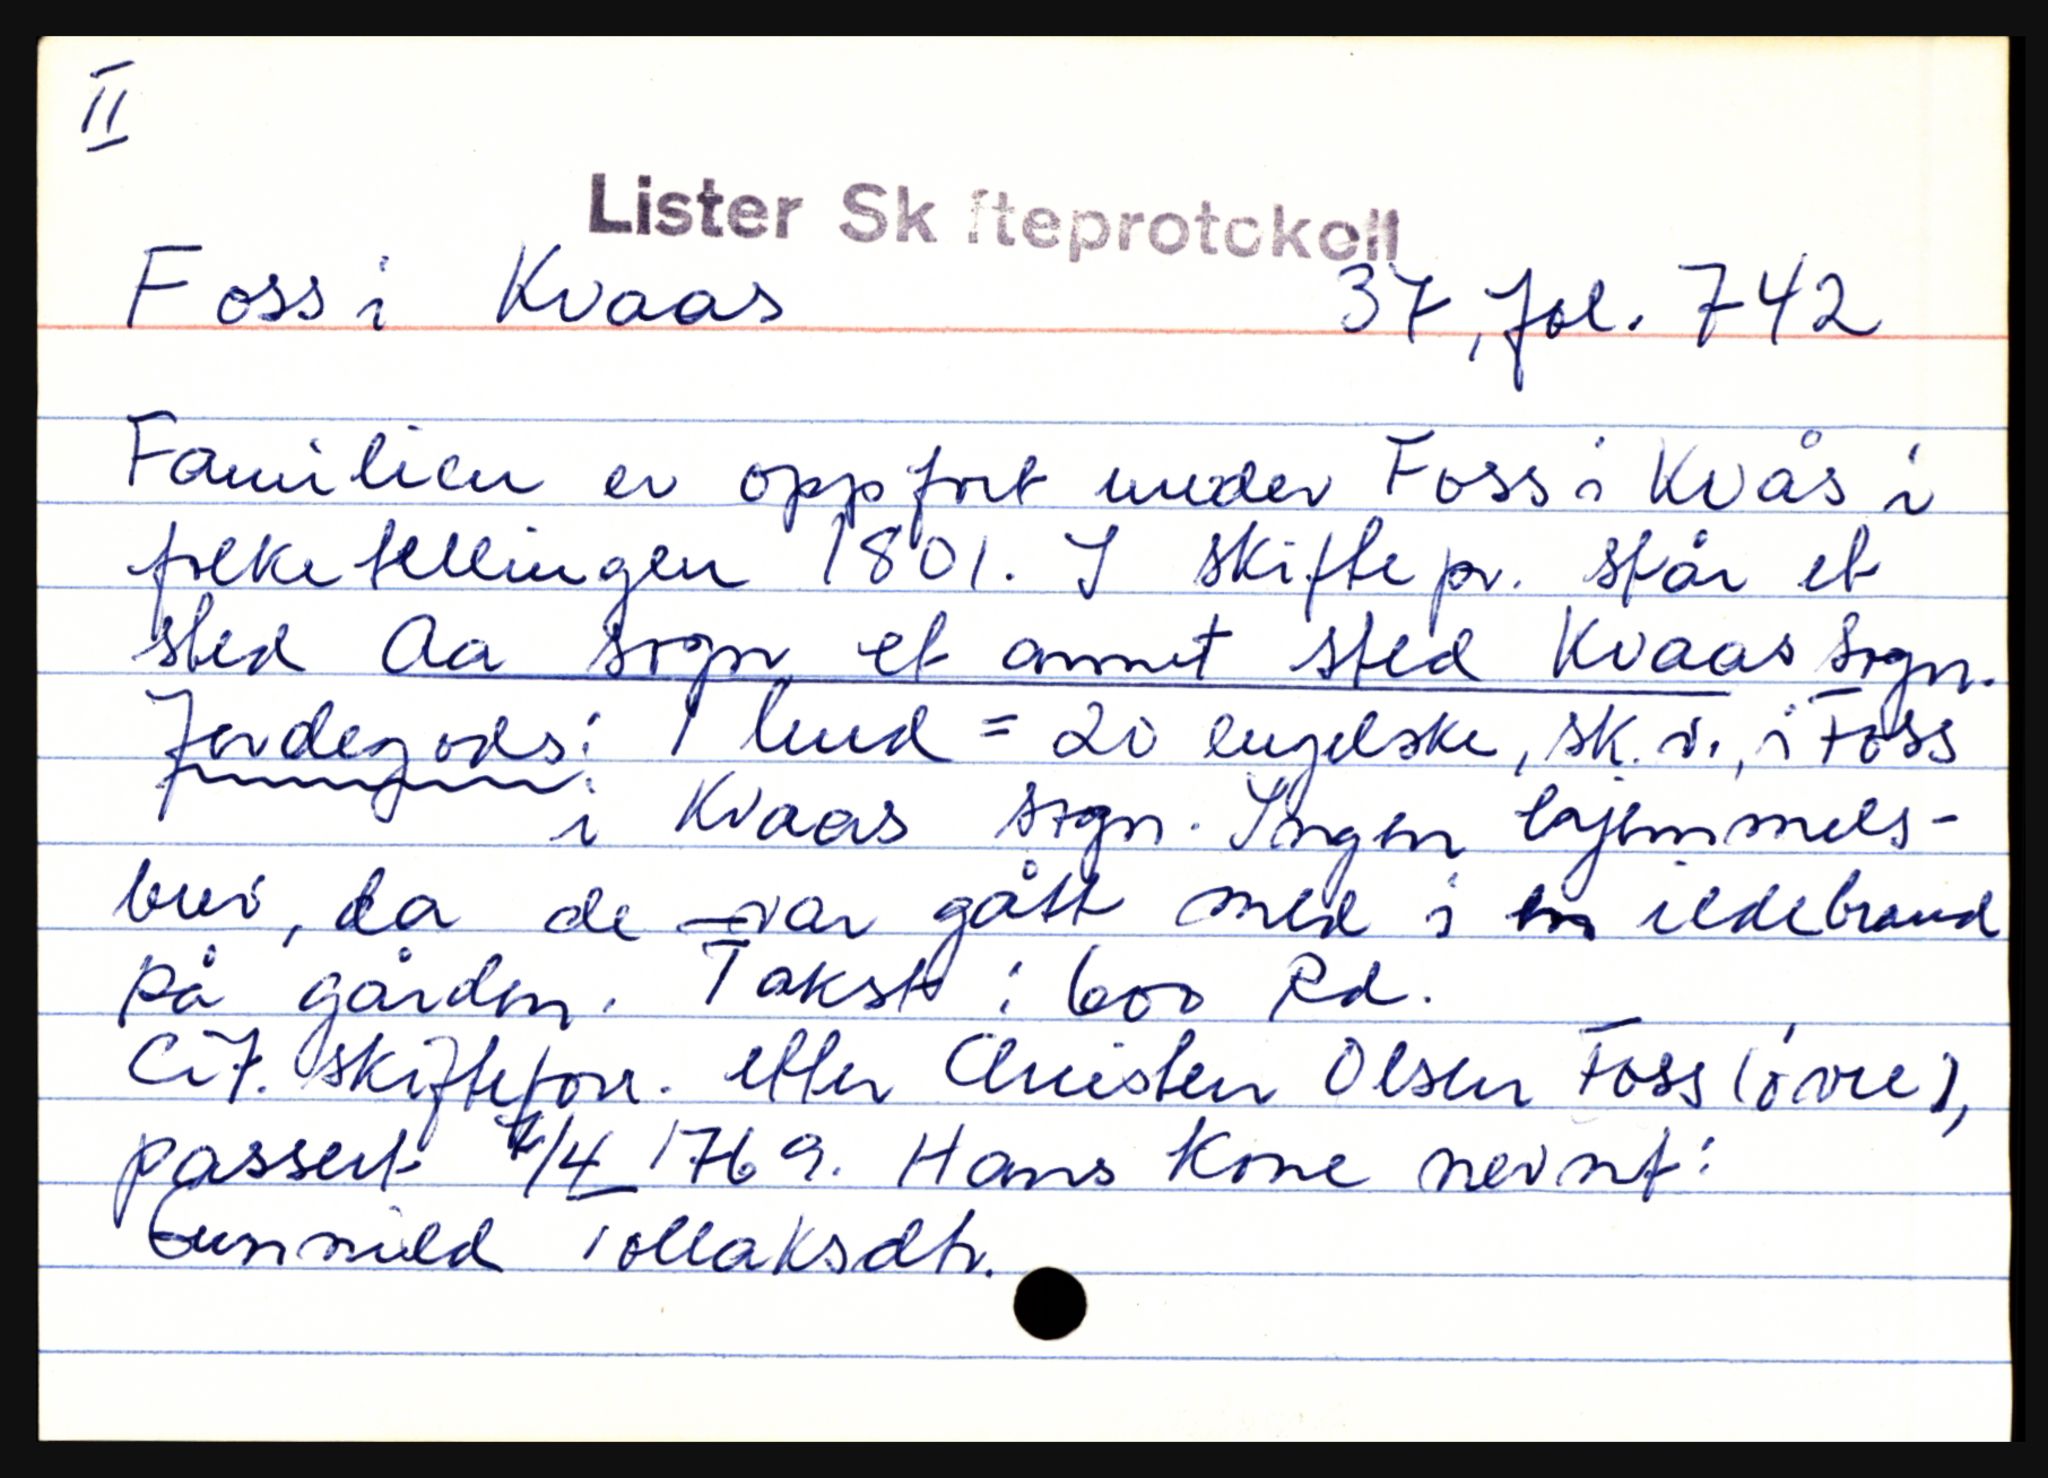 II
Lister Sk fteprotokoll
Foss i Kvaas 37, fol. 742
Familien er oppført under Foss i Kvås i
folketellingen 1801. I skiftepr. står et
sted Aa sogn et annet sted Kvaas sogn.
Jordegods: 1 hud = 20 engelske, sk. v., i Foss
i Kvaas sogn. Ingen hjemmels-
brev, da de var gått med i en ildebrand
på gården. Takst: 600 Rd.
Cit. skifteforr. etter Christen Olsen Foss (øvre),
passert 4/4 1769. Hans kone nevnt:
Gunnild Tollaksdtr.